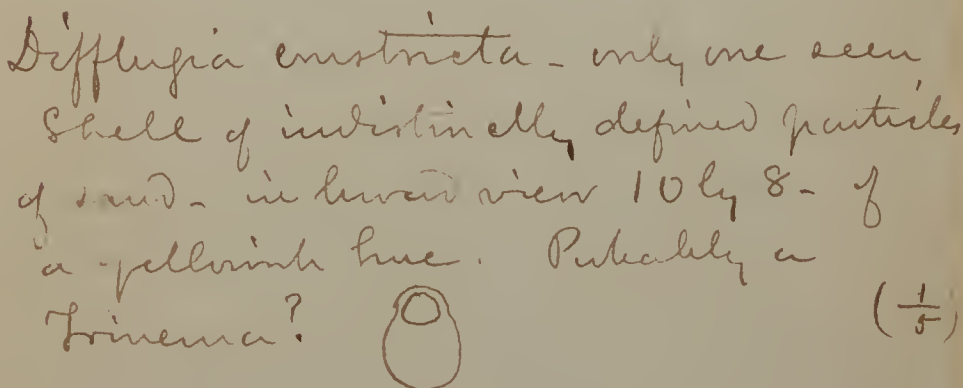 Difflugia constricta - only one seen
Shell of indistinctly defined particles
of sand - in broad view 10 by 8 - of
a yellowish hue. Probably a
Trinema? (1/5)